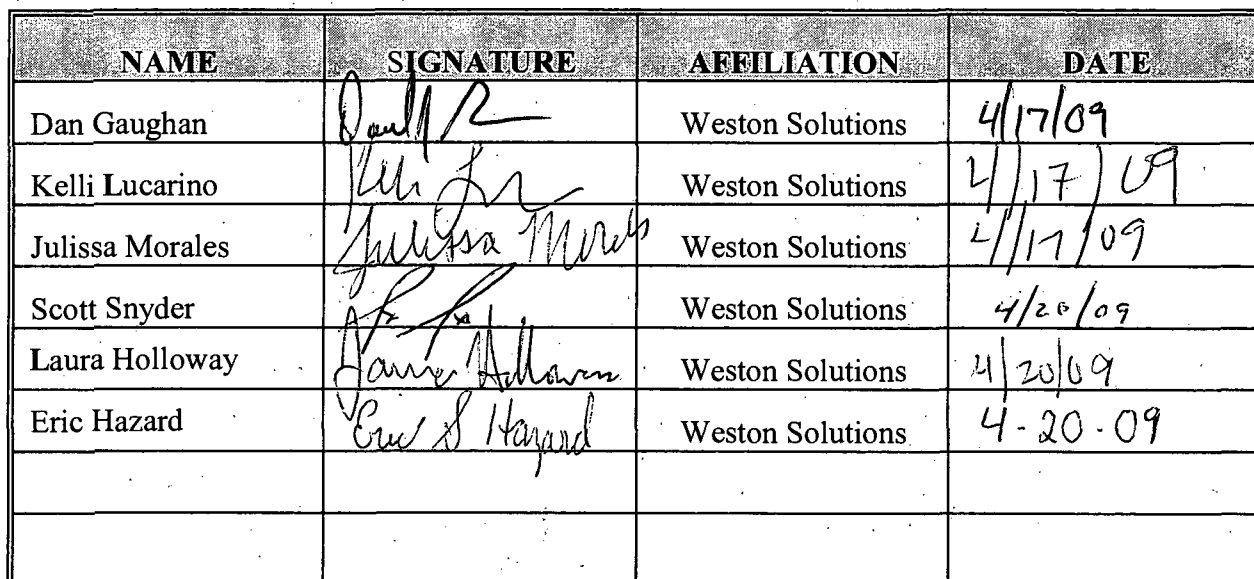 NAME SIGNATURE AFFILIATION DATE
Dan Gaughan Weston Solutions 4/17/09
Kelli Lucarino Weston Solutions 4/17/09
Julissa Morales Julissa Morales Weston Solutions 4/17/09
Scott Snyder Weston Solutions 4/20/09
Laura Holloway Weston Solutions 4/20/09
Eric Hazard Eric S Hazard Weston Solutions 4-20-09